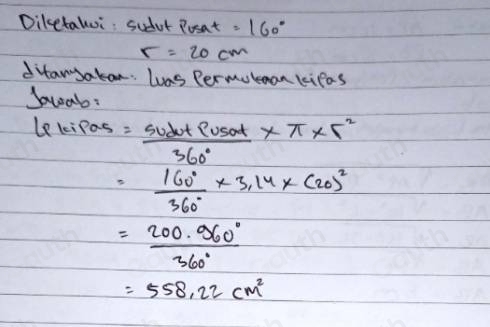 Diketahui : sudut Pusat = 160°
r = 20 cm
ditanyakan : Luas Permukaan kipas
Jawab :
Lp kipas = sudut Pusat / 360° × π × r²
= 160° / 360° × 3,14 × (20)²
= 200.960° / 360°
= 558,22 cm²